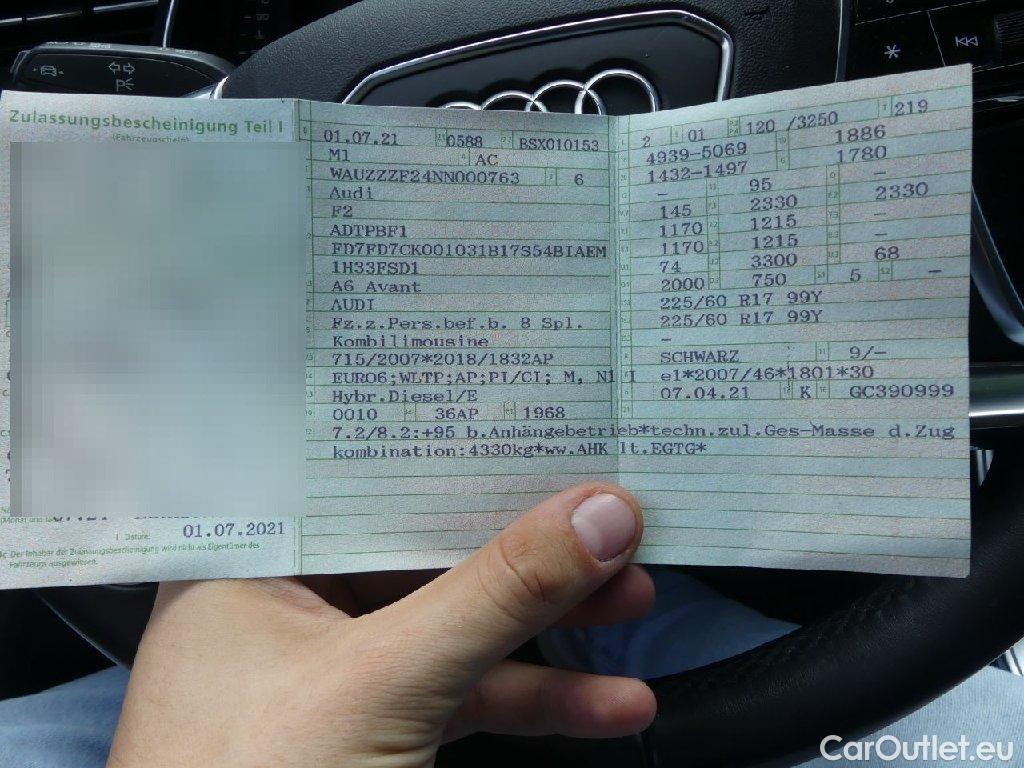 Zulassungsbescheinigung Teil I
(Fahrzeugschein)
01.07.21 0588 BSX010153
M1 AC
WAUZZZF24NN000763 6
Audi
F2
ADTPBF1
FD7FD7CK001031B17S54BIAEM
1H33FSD1
A6 Avant
AUDI
Fz.z.Pers.bef.b. 8 Spl.
Kombilimousine
715/2007*2018/1832AP
EURO6;WLTP;AP;PI/CI; M, N1 I
Hybr.Diesel/E
0010 36AP 1968
7.2/8.2:+95 b.Anhängebetrieb*techn.zul.Ges-Masse d.Zug
kombination:4330kg*ww.AHK lt.EGTG*
2 01 120 /3250 219
4939-5069 1886
1432-1497 1780
- 95 -
145 2330 2330
1170 1215 -
1170 1215 -
74 3300 68
2000 750 5 -
225/60 R17 99Y
225/60 R17 99Y
-
SCHWARZ 9/-
e1*2007/46*1801*30
07.04.21 K GC390999
Datum: 01.07.2021
Der Inhaber der Zulassungsbescheinigung wird nicht als Eigentümer des
Fahrzeugs ausgewiesen.
CarOutlet.eu